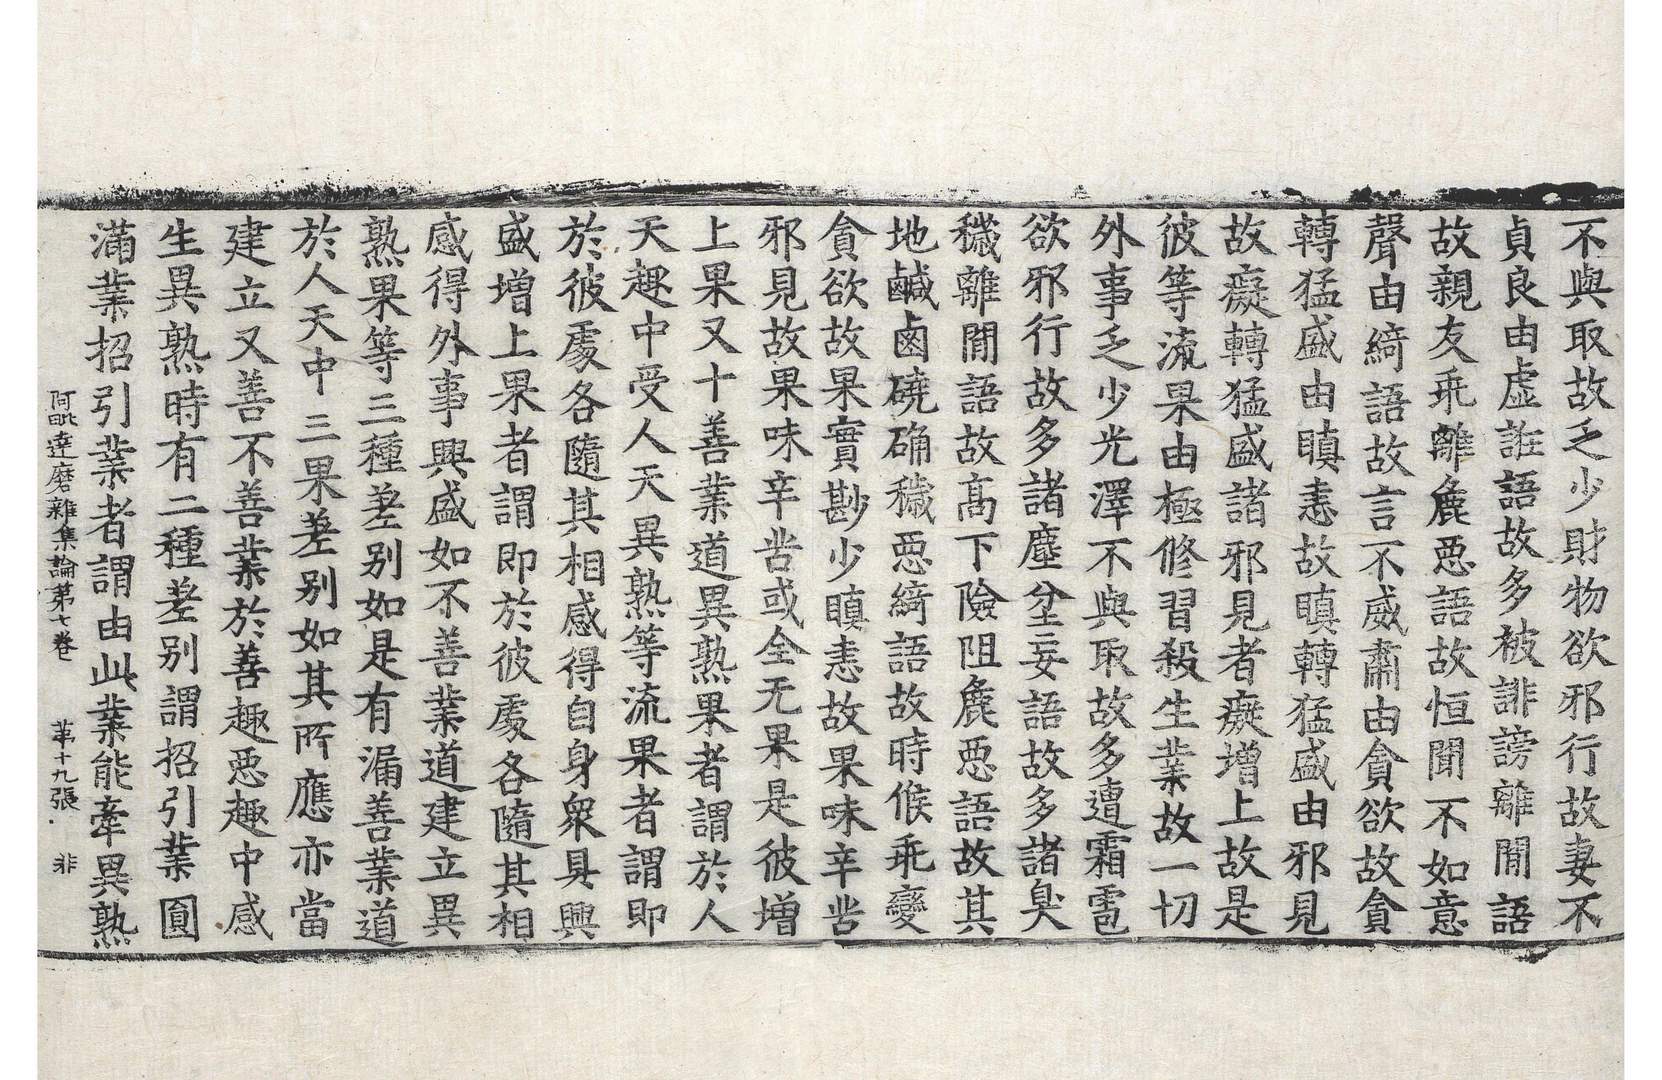 不與取故乏少財物欲邪行故妻不
貞良由虛誑語故多被誹謗離間語
故親友乖離麁惡語故恒聞不如意
聲由綺語故言不威肅由貪欲故貪
轉猛盛由瞋恚故瞋轉猛盛由邪見
故癡轉猛盛諸邪見者癡增上故是
彼等流果由極修習殺生業故一切
外事乏少光澤不與取故多遭霜雹
欲邪行故多諸塵坌妄語故多諸臭
穢離間語故高下險阻麁惡語故其
地鹹鹵磽确穢惡綺語故時候乖變
貪欲故果實尠少瞋恚故果味辛苦
邪見故果味辛苦或全无果是彼增
上果又十善業道異熟果者謂於人
天趣中受人天異熟等流果者謂即
於彼處各隨其相感得自身衆具興
盛增上果者謂即於彼處各隨其相
感得外事興盛如不善業道建立異
熟果等三種差别如是有漏善業道
於人天中三果差别如其所應亦當
建立又善不善業於善趣惡趣中感
生異熟時有二種差别謂招引業圓
滿業招引業者謂由此業能牽異熟
阿毗達磨雜集論第七卷 第十九張 非